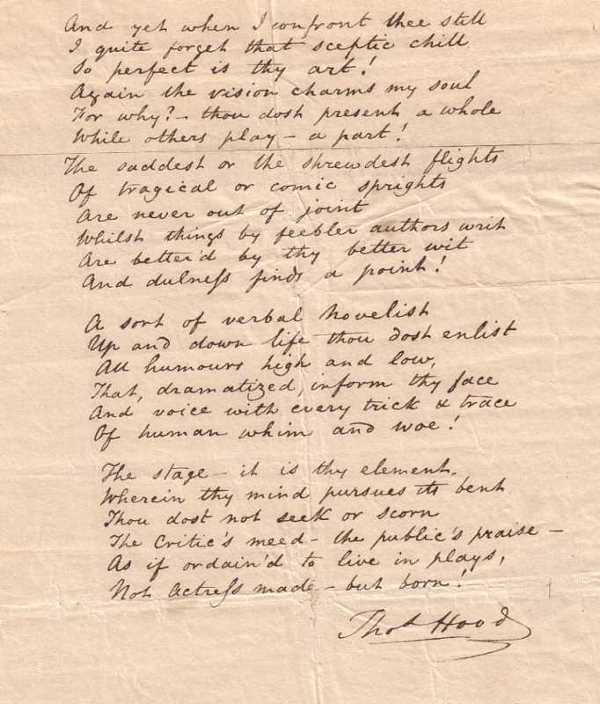 And yet when I confront thee still
I quite forget that sceptic chill
So perfect is thy art!
Again the vision charms my soul
For why? – thou dost present a whole
While others play – a part!
The saddest or the shrewdest flights
Of tragical or comic sprights
Are never out of joint
Whilst things by feebler authors writ
Are better'd by thy better wit
And dulneſs finds a point!
A sort of verbal Novelist
Up and down life thou dost enlist
All humours high and low,
That, dramatized inform thy face
And voice with every trick & trace
Of human whim and woe!
The stage – it is thy element.
Wherein thy mind pursues its bent
Thou dost not seek or scorn
The Critic's meed – the public's praise –
As if ordain'd to live in plays,
Not Actreſs made – but born!
Thoˢ Hood